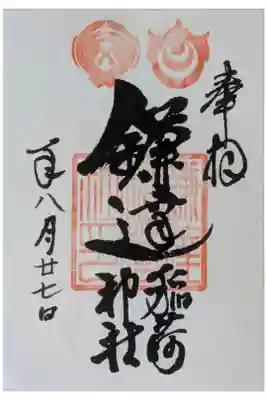 奉拝
鎌達稲荷神社
年八月廿七日